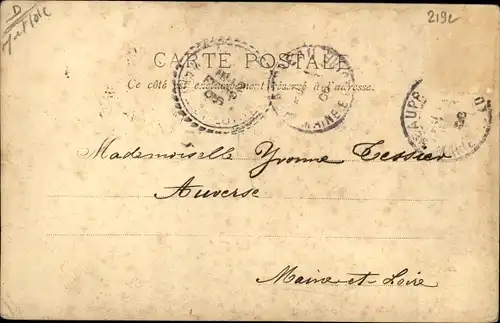 D
219c
CARTE POSTALE
Ce côté est exclusivement réservé à l'adresse.
Mademoiselle Yvonne Tessier
Auverse
Maine-et-Loire